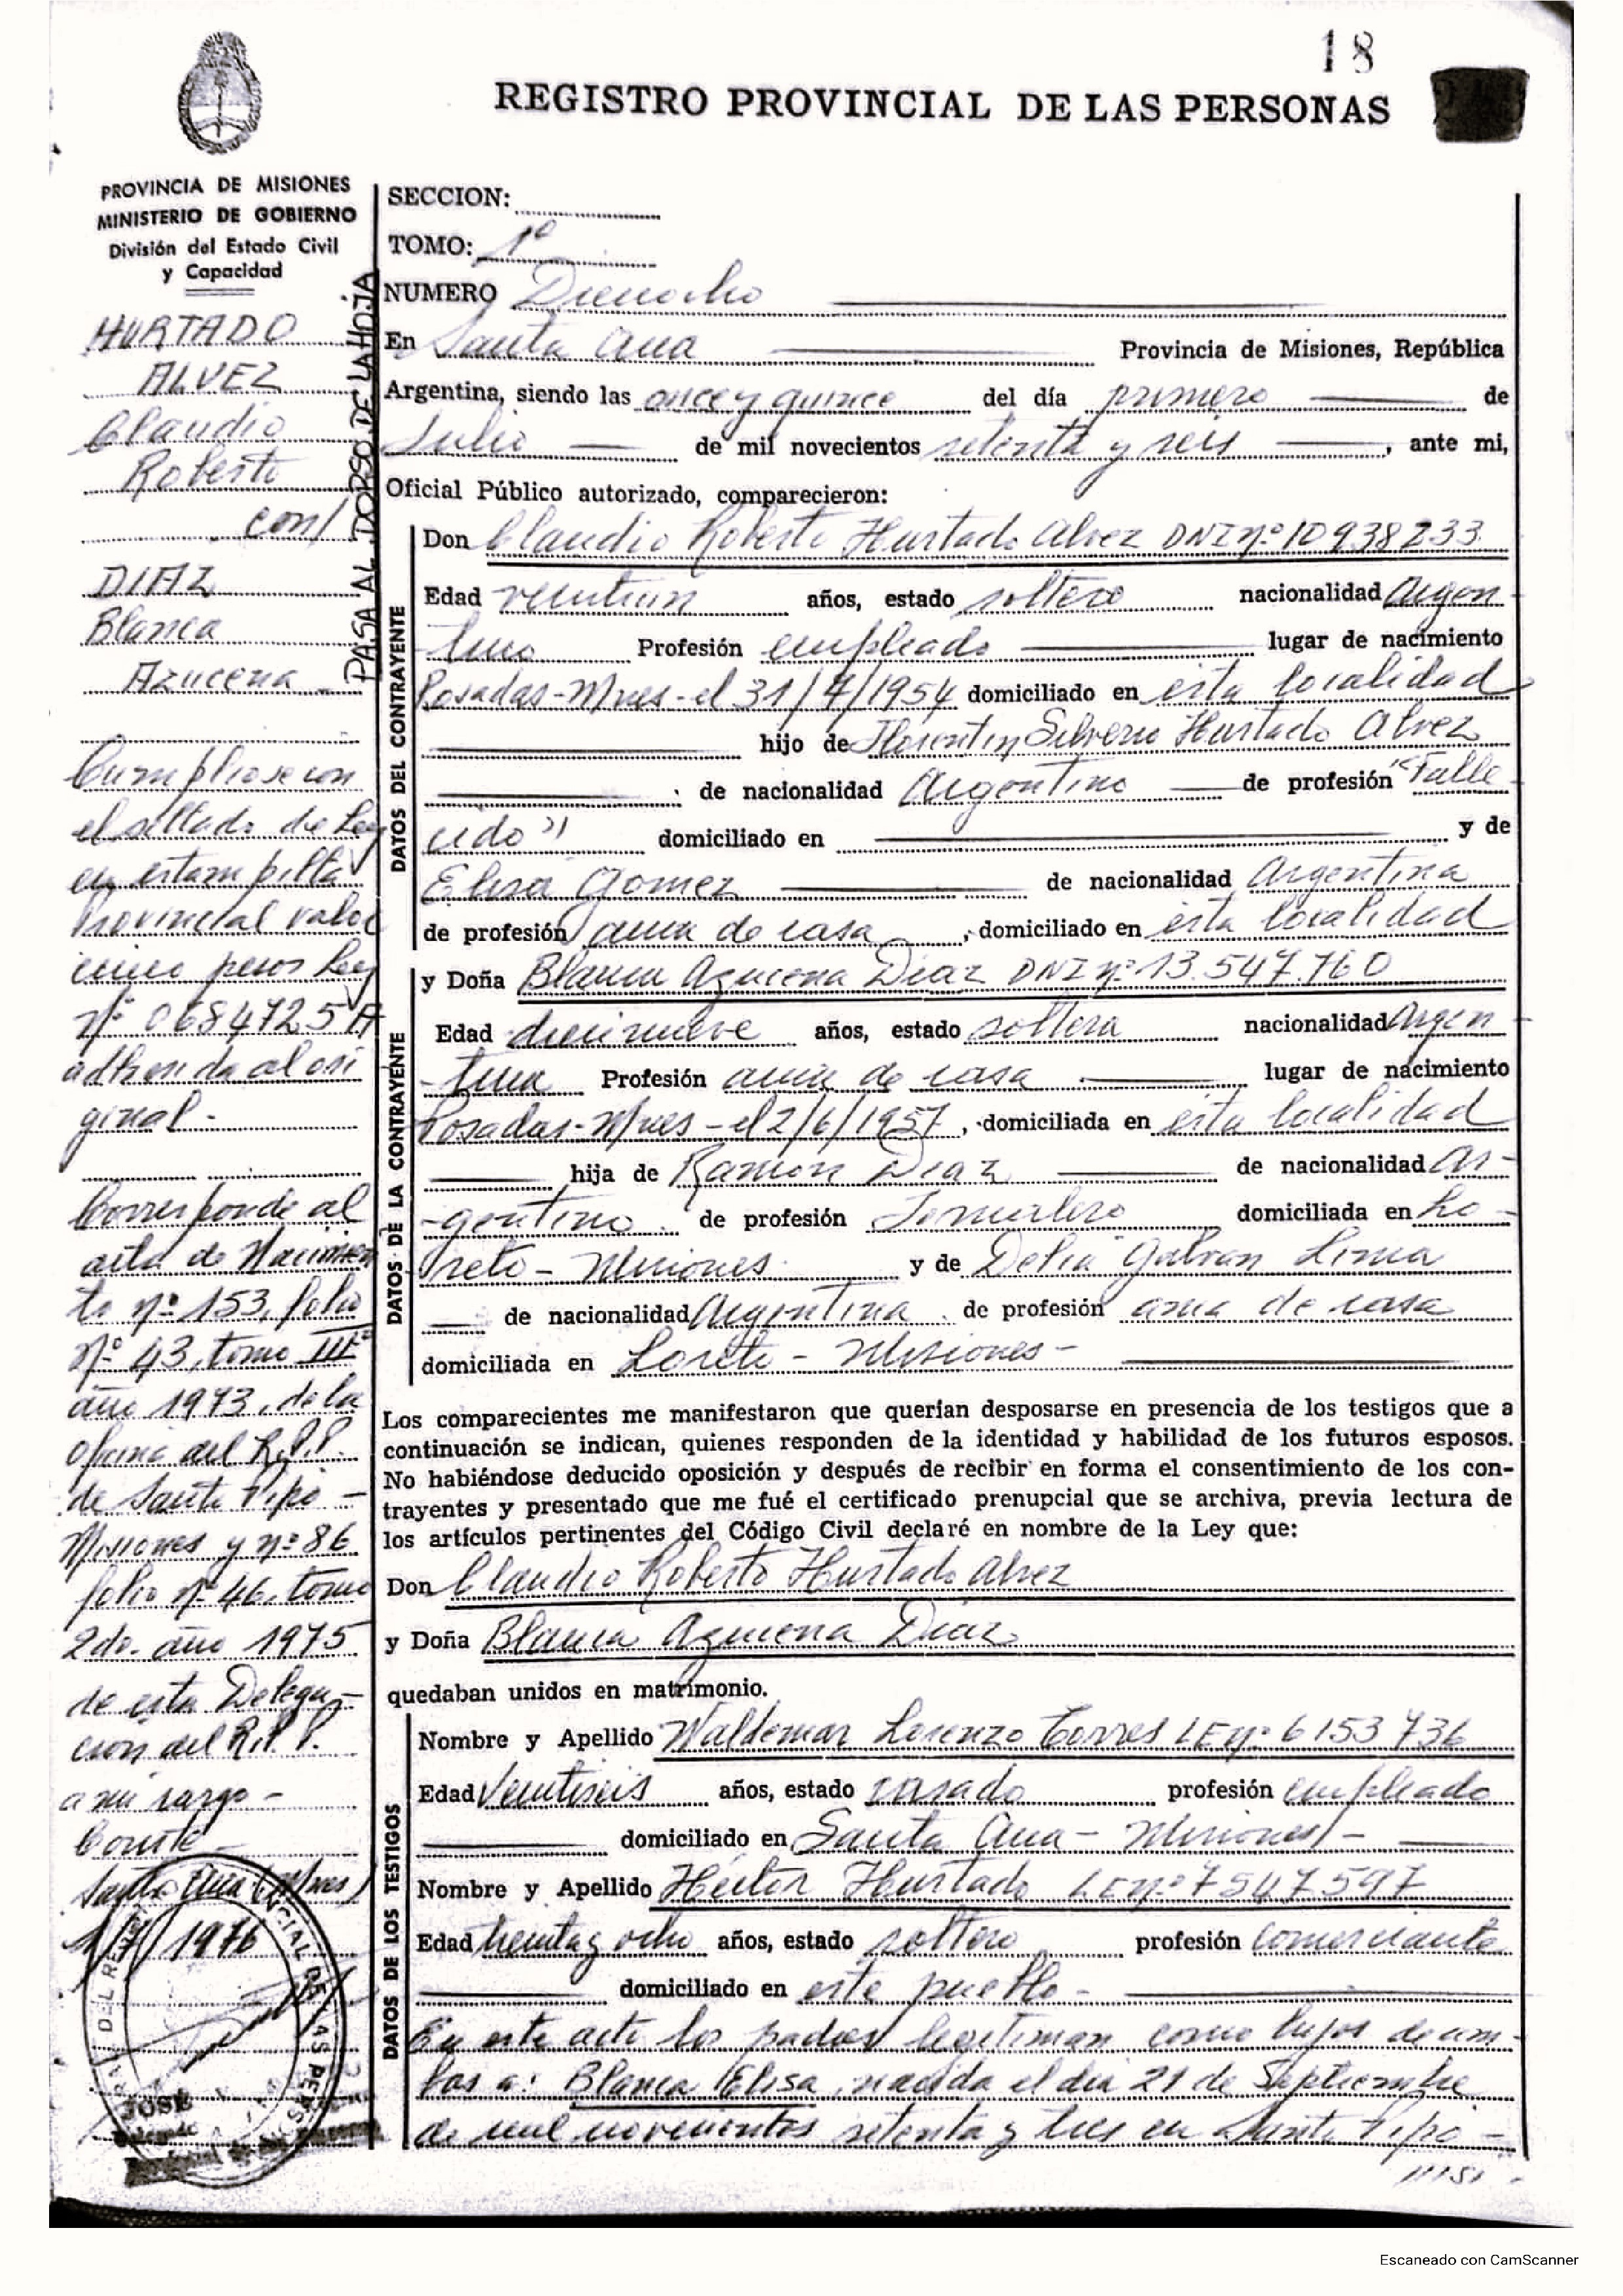 18
REGISTRO PROVINCIAL DE LAS PERSONAS
PROVINCIA DE MISIONES
MINISTERIO DE GOBIERNO
División del Estado Civil
y Capacidad
HURTADO
ALVEZ
Claudio
Roberto
con/
DIAZ
Blanca
Azucena
Cumpliose con
el sellado de Ley
en estampilla
Provincial valor
cinco pesos Ley
nº 0684725 A
adherida al ori
ginal.-
Corresponde al
acta de Nacimien
to nº 153, folio
Nº 43, tomo III
año 1973, de la
oficina del R.P.P.
de Santo Pipó -
Misiones y nº 86
folio nº 46, tomo
2do. año 1975
de esta Delega-
ción del R.P.P.
a mi cargo -
Conste -
Santa Ana (Mnes)
1/7/1976
JOSÉ
PASA AL DORSO DE LA HOJA
SECCION:
TOMO: 1º
NUMERO Dieciocho
En Santa Ana Provincia de Misiones, República
Argentina, siendo las once y quince del día primero de
Julio de mil novecientos setenta y seis, ante mi,
Oficial Público autorizado, comparecieron:
DATOS DEL CONTRAYENTE
Don Claudio Roberto Hurtado Alvez DNI nº 10938233
Edad veintiun años, estado soltero nacionalidad Argen-
tino Profesión empleado lugar de nacimiento
Posadas-Mnes-el 31/7/1954 domiciliado en esta localidad
hijo de Florentin Silverio Hurtado Alvez
de nacionalidad Argentino de profesión "Falle-
cido" domiciliado en y de
Elisa Gomez de nacionalidad Argentina
de profesión ama de casa, domiciliado en esta localidad
DATOS DE LA CONTRAYENTE
y Doña Blanca Azucena Diaz DNI nº 13.547.760
Edad diecinueve años, estado soltera nacionalidad Argen-
tina Profesión ama de casa lugar de nacimiento
Posadas-Mnes-el 2/6/1957, domiciliada en esta localidad
hija de Ramón Diaz de nacionalidad Ar-
gentino de profesión Jornalero domiciliada en Lo-
reto - Misiones y de Delia Galvan Lima
de nacionalidad Argentina de profesión ama de casa
domiciliada en Loreto - Misiones -
Los comparecientes me manifestaron que querían desposarse en presencia de los testigos que a
continuación se indican, quienes responden de la identidad y habilidad de los futuros esposos.
No habiéndose deducido oposición y después de recibir en forma el consentimiento de los con-
trayentes y presentado que me fué el certificado prenupcial que se archiva, previa lectura de
los artículos pertinentes del Código Civil declaré en nombre de la Ley que:
Don Claudio Roberto Hurtado Alvez
y Doña Blanca Azucena Diaz
quedaban unidos en matrimonio.
DATOS DE LOS TESTIGOS
Nombre y Apellido Waldemar Lorenzo Torres LE nº 6153736
Edad Veintiseis años, estado casado profesión empleado
domiciliado en Santa Ana - Misiones -
Nombre y Apellido Héctor Hurtado LE nº 7547597
Edad treinta y ocho años, estado soltero profesión Comerciante
domiciliado en este pueblo -
En este acto los padres legitiman como hijos de am-
bos a: Blanca Elisa, nacida el día 21 de Septiembre
de mil novecientos setenta y tres en Santo Pipó -
Escaneado con CamScanner